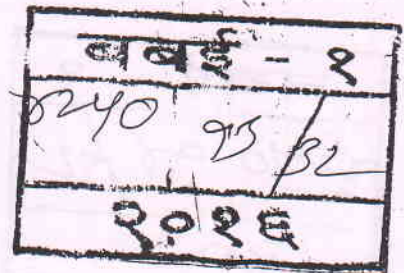 बबई - १
5240 95/32
२०१६